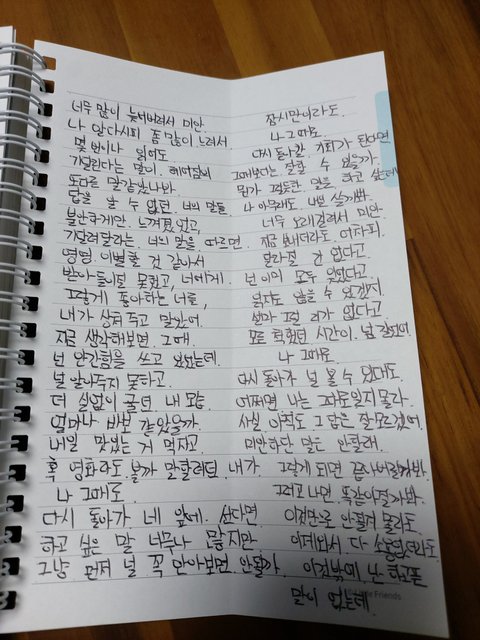 너무 많이 늦어버려서 미안.
나 알다시피 좀 많이 느려서.
몇 번이나 읽어도
기다린다는 말이 헤어짐의
또다른 말 같았나봐.
답을 알 수 없던 너의 말들
불안하게만 느껴졌었고,
기다려달라는 너의 말을 따르면
영영 이별할 것 같아서
받아들이질 못했고, 너에게.
그렇게 좋아하는 너를,
내가 상처 주고 말았어.
지금 생각해보면 그때.
넌 안간힘을 쓰고 있었는데.
널 알아주지 못하고.
더 실없이 굴던 내 모습
얼마나 바보 같았을까.
내일 맛있는 거 먹자고.
혹 영화라도 볼까 말할려던 내가.
나 그때로
다시 돌아가 네 앞에 선다면
하고 싶은 말 너무나 많지만
그냥 먼저 널 꼭 안아보면 안될까
잠시만이라도.
나 그때로
다시 돌아갈 기회가 된다면
그때보다는 잘할 수 있을까.
뭔가 그럴듯한 말을 하고 싶은데
나 아무래도 나쁠 싫가봐.
너무 오래걸려서 미안.
지금 보내더라도 어차피.
달라질 건 없다고
넌 이미 모두 잊었다고.
읽지도 않을 수 있겠지
설마 그럴 리가 없다고
모든 확했던 시간이 넘 잘되어.
나 그때로
다시 돌아가 널 볼 수 있대도.
어쩌면 나는 그대로일지 몰라.
사실 아직도 그 답은 잘 모르겠어.
미안하단 말은 안할래.
그렇게 되면 끝나버릴까봐.
그러고나면 똑같아질까봐.
이것만으로 안될걸 몰라도
이제와서 다 소용없더라도
이것밖에 난 하고픈
말이 없는데.
Friends